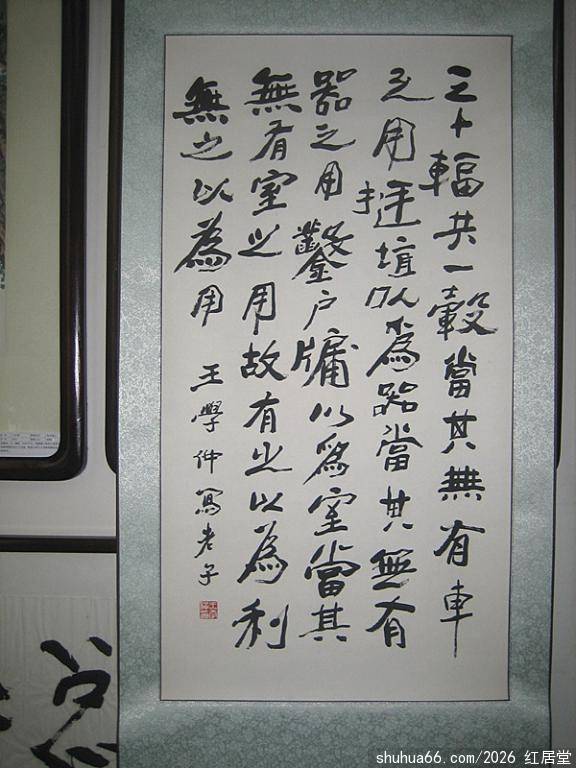 三十輻共一轂當其無有車
之用挻埴以為器當其無有
器之用鑿户牖以為室當其
無有室之用故有之以為利
無之以為用
王學仲寫老子
shuhua66.com/2026 红居堂